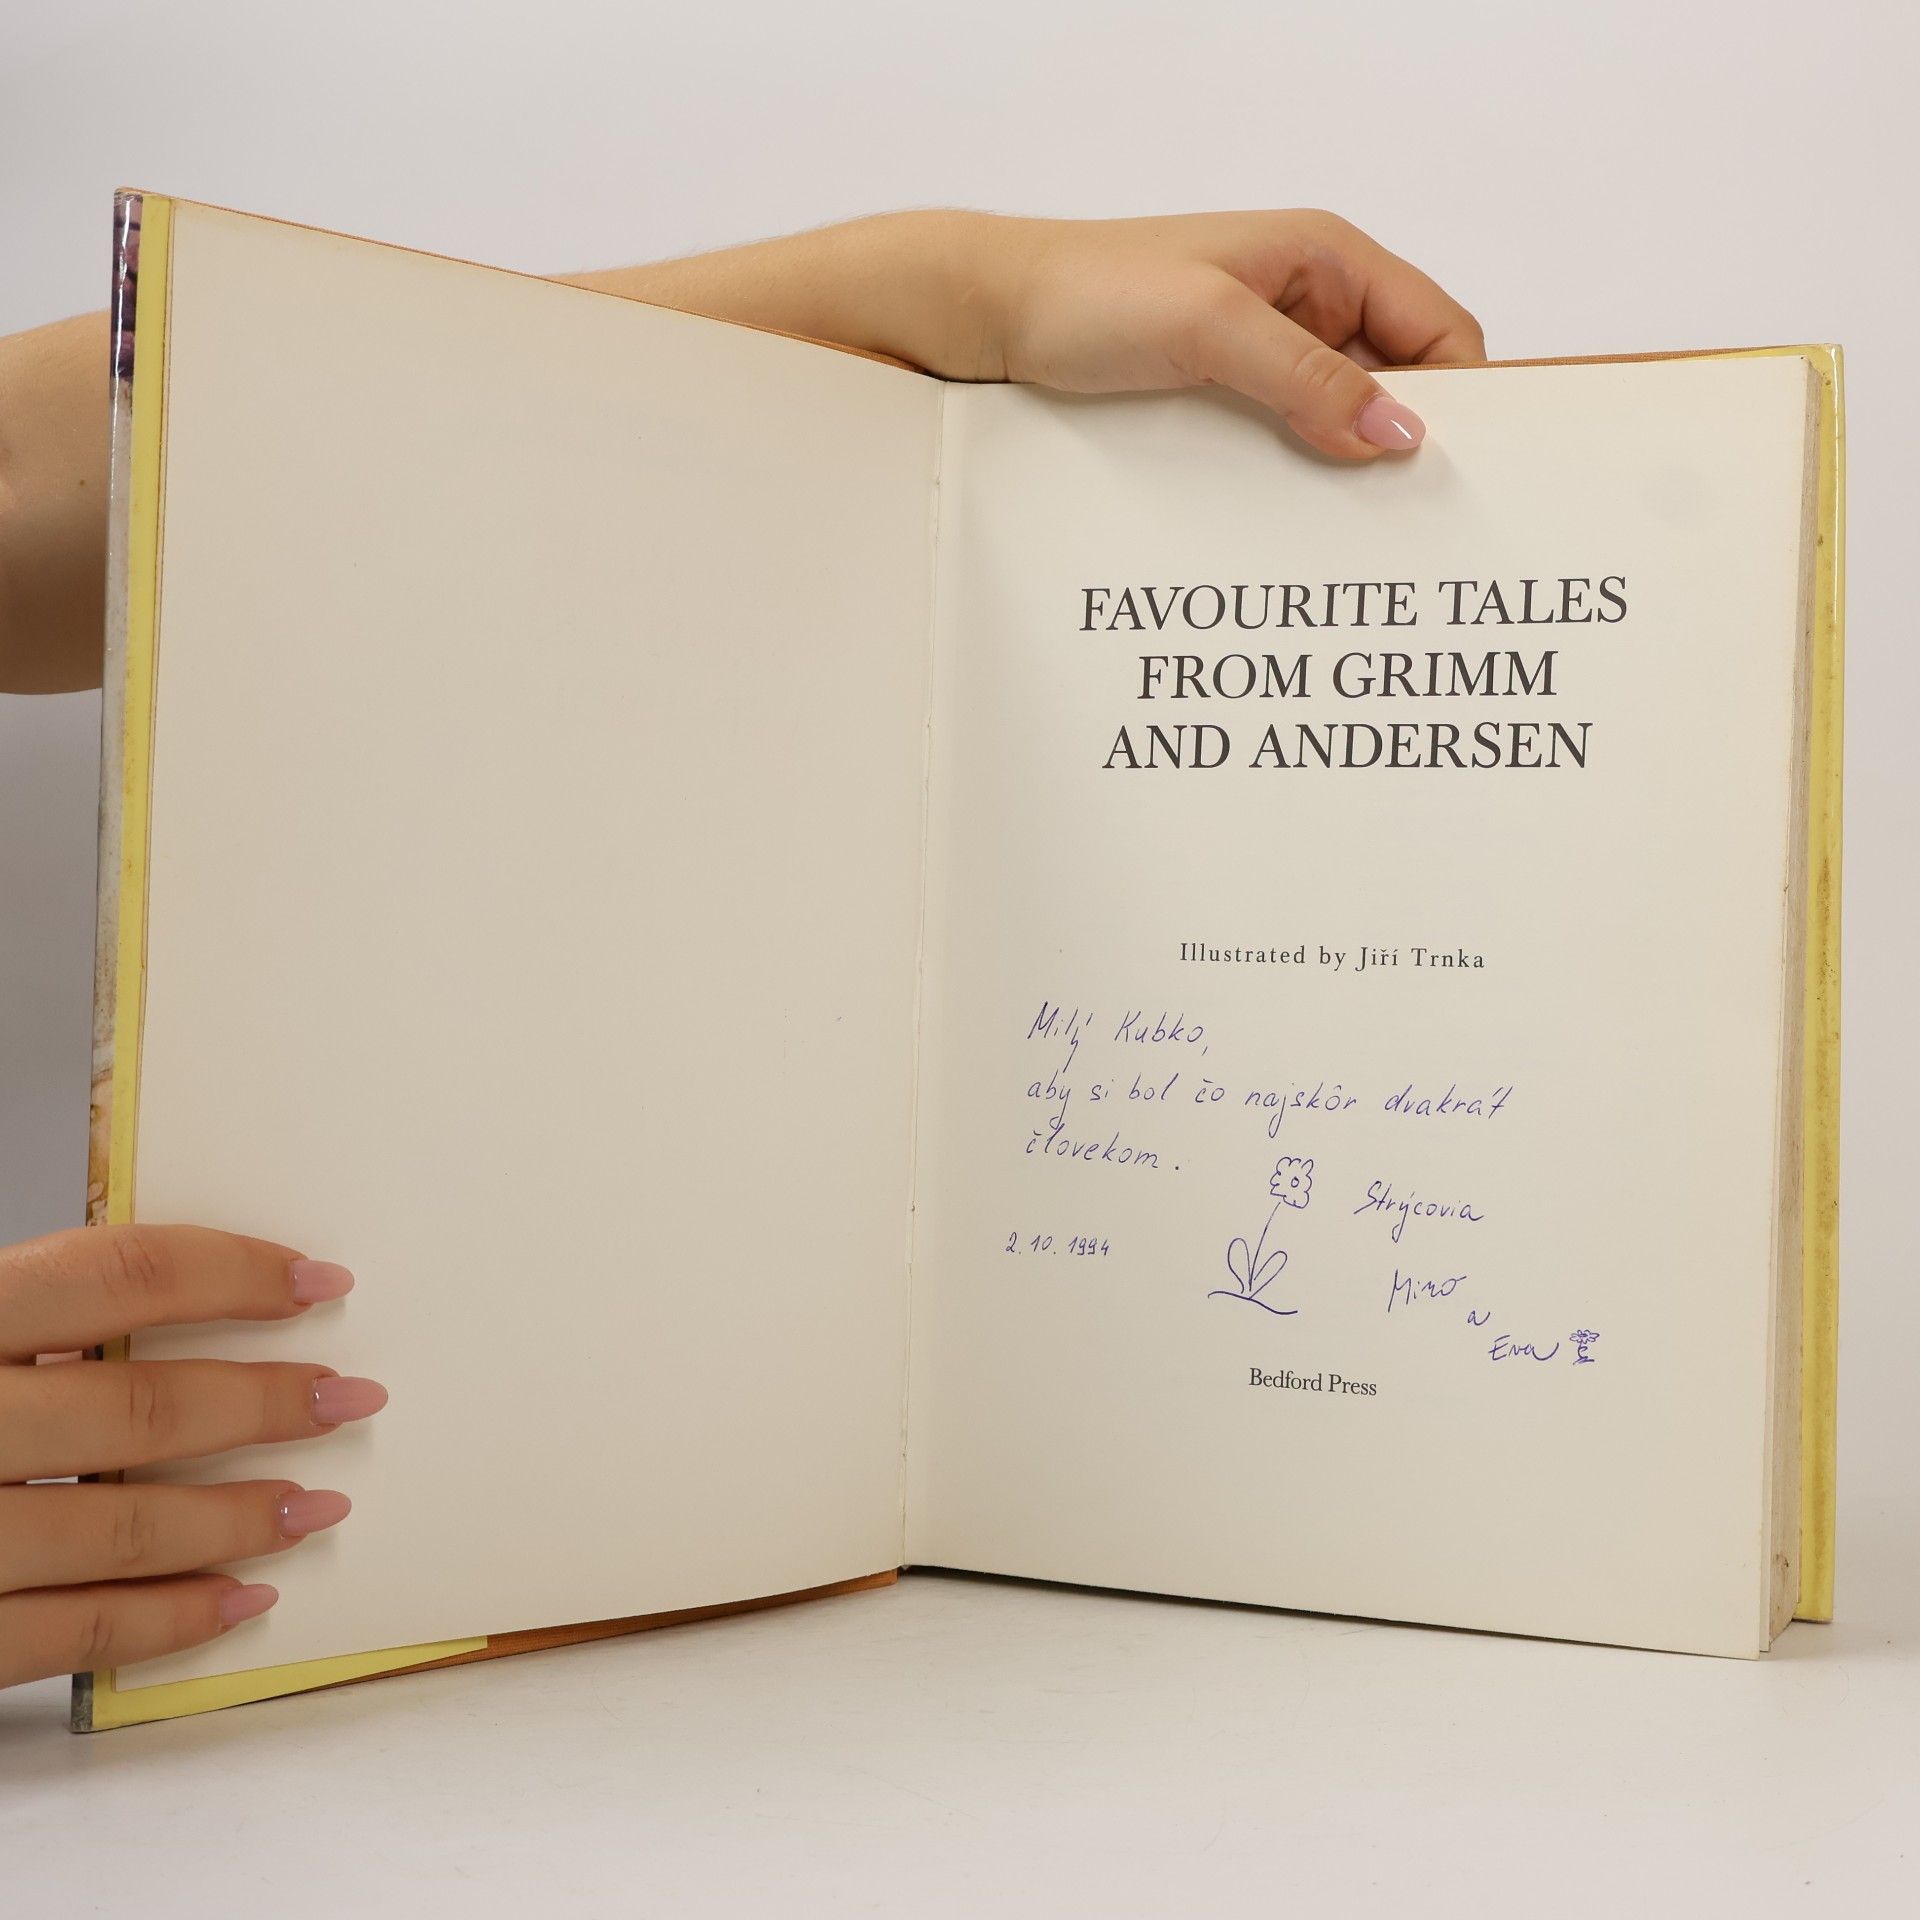 FAVOURITE TALES
FROM GRIMM
AND ANDERSEN
Illustrated by Jiří Trnka
Milý Kubko,
aby si bol čo najskôr dvakrát
človekom.
Strýcovia
2. 10. 1994
Miro
a
Eva
Bedford Press